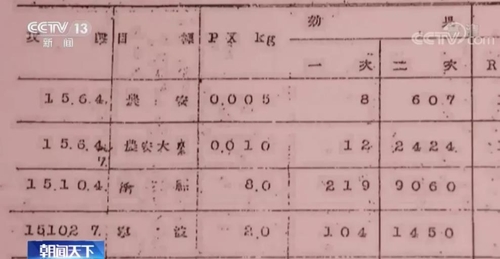 CCTV 13
新闻
CCTV.com
目標 PX kg 効果
一次 二次 R
15.6.4. 農安 0.005 8 607
15.6.4. 農安大 0.010 12 2424
7.
15.10.4. 8.0 219 9060
15102 7. 波 2.0 104 1450
朝闻天下